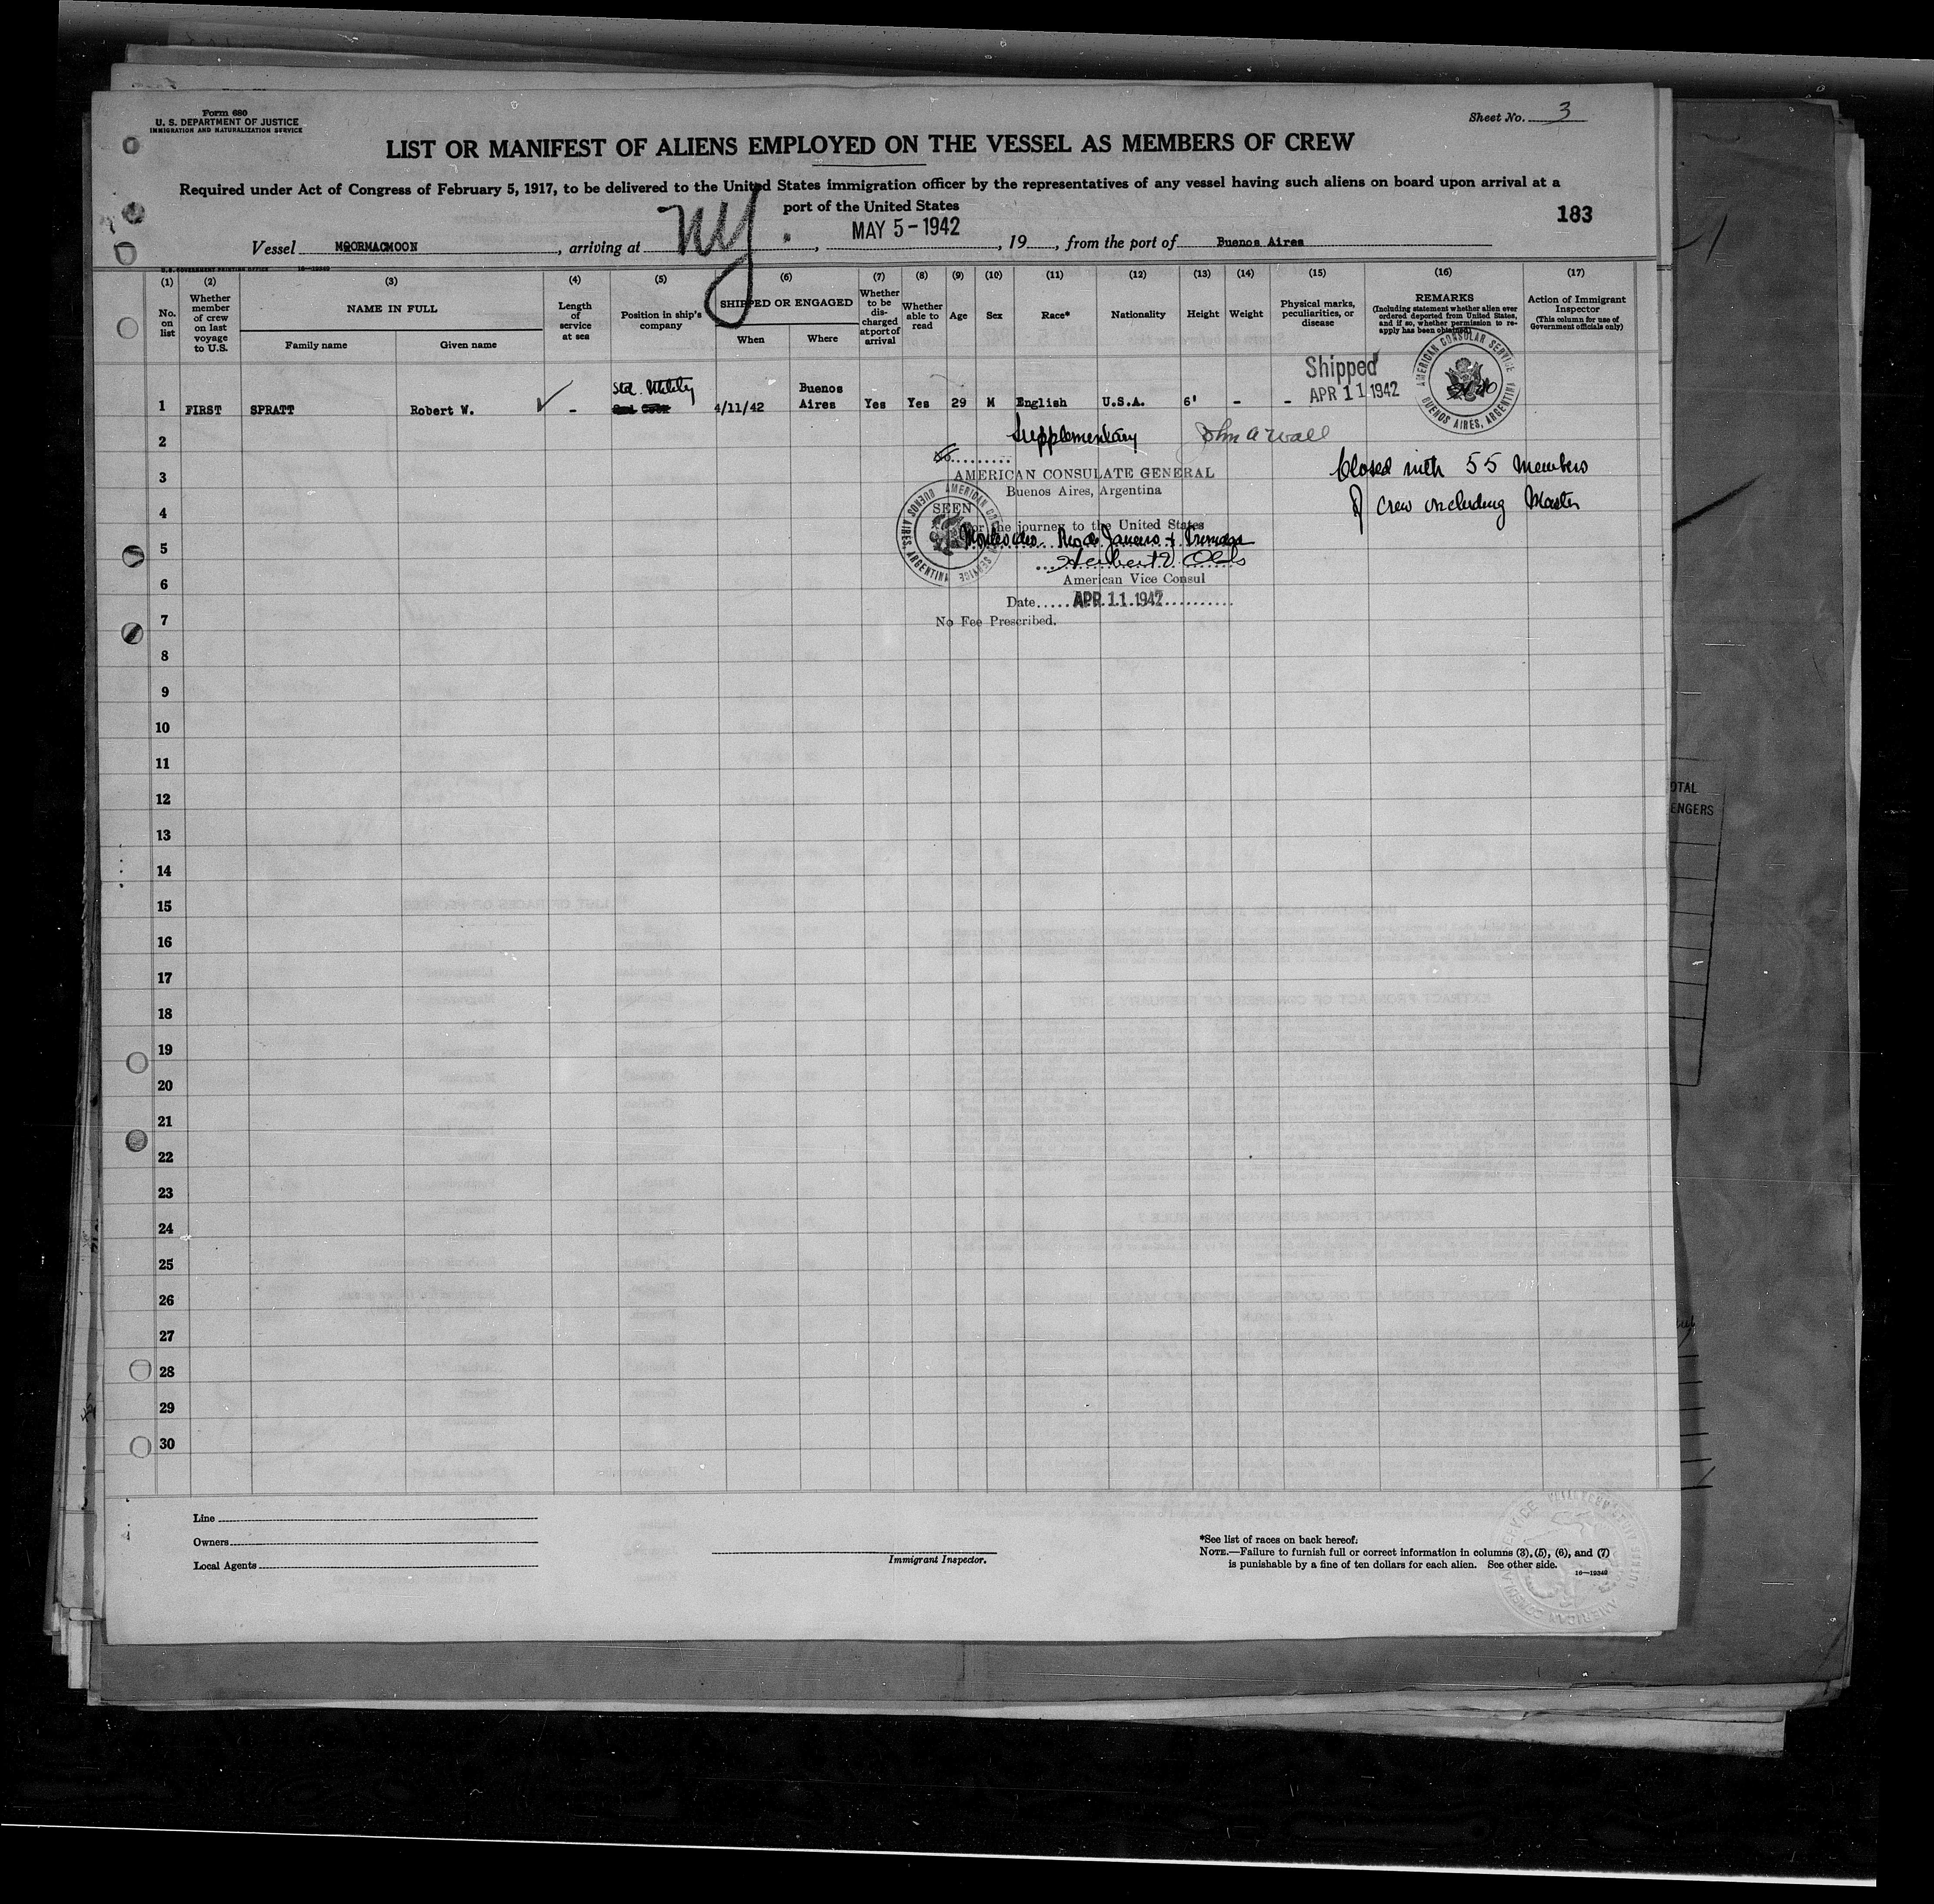 Form 680
U. S. DEPARTMENT OF JUSTICE
IMMIGRATION AND NATURALIZATION SERVICE
Sheet No. 3
LIST OR MANIFEST OF ALIENS EMPLOYED ON THE VESSEL AS MEMBERS OF CREW
Required under Act of Congress of February 5, 1917, to be delivered to the United States immigration officer by the representatives of any vessel having such aliens on board upon arrival at a
port of the United States
183
Vessel MOORMACMOON, arriving at NY., MAY 5-1942, 19, from the port of Buenos Aires
U.S. GOVERNMENT PRINTING OFFICE 16-19349
(1) (2) (3) (4) (5) (6) (7) (8) (9) (10) (11) (12) (13) (14) (15) (16) (17)
No. on list
Whether member of crew on last voyage to U.S.
NAME IN FULL
Family name
Given name
Length of service at sea
Position in ship's company
SHIPPED OR ENGAGED
When
Where
Whether to be discharged at port of arrival
Whether able to read
Age
Sex
Race*
Nationality
Height
Weight
Physical marks, peculiarities, or disease
REMARKS
(Including statement whether alien ever ordered deported from United States, and if so, whether permission to reapply has been obtained)
Action of Immigrant Inspector
(This column for use of Government officials only)
Shipped
APR 11 1942
AMERICAN CONSULAR SERVICE
BUENOS AIRES, ARGENTINA
1 FIRST SPRATT Robert W. - Std. Utility 4/11/42 Buenos Aires Yes Yes 29 M English U.S.A. 6' - -
2
Supplementary John A Wall
3
No..........
AMERICAN CONSULATE GENERAL
Buenos Aires, Argentina
Closed with 55 Members
of crew including Master
4
SEEN
AMERICAN CONSULAR SERVICE
BUENOS AIRES, ARGENTINA
For the journey to the United States
5
Montevideo Rio de Janeiro & Trinidad
American Vice Consul
6
Date APR 11 1942
7
No Fee Prescribed.
8
9
10
11
12
13
14
15
16
17
18
19
20
21
22
23
24
25
26
27
28
29
30
Line
Owners
Local Agents
Immigrant Inspector.
*See list of races on back hereof.
NOTE.—Failure to furnish full or correct information in columns (3), (5), (6), and (7)
is punishable by a fine of ten dollars for each alien. See other side.
16-19349
OTAL
ENGERS